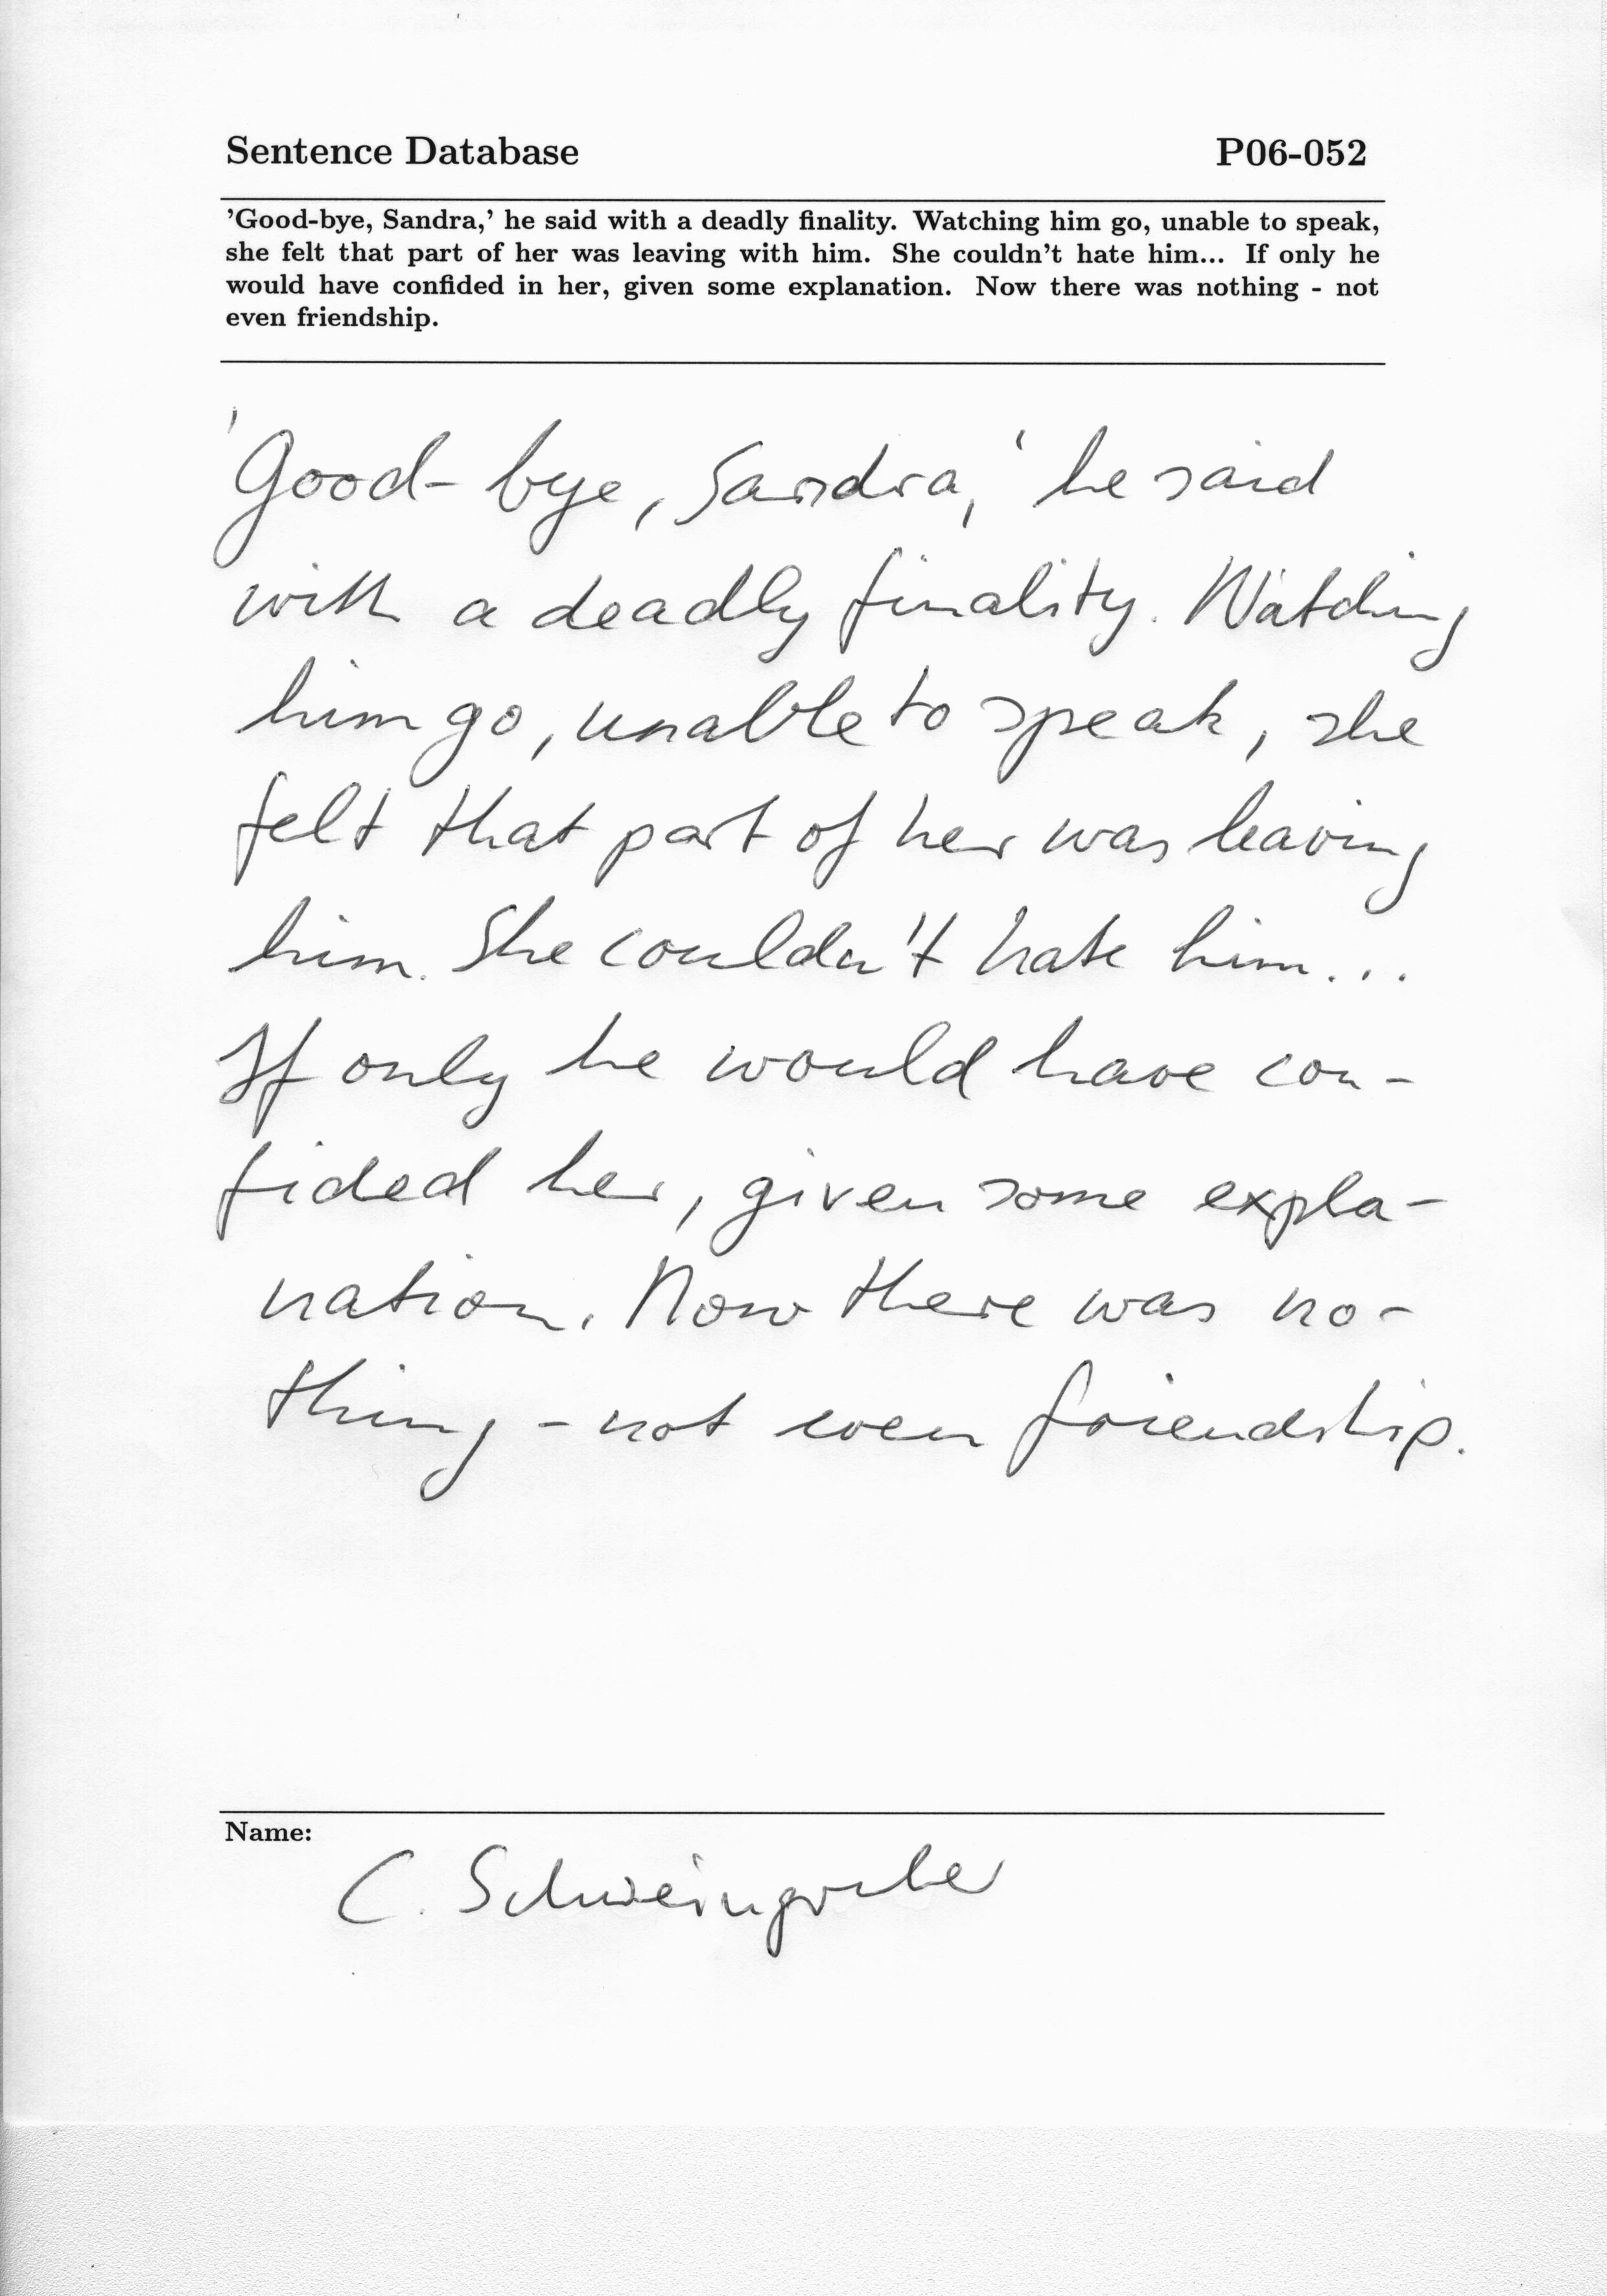 Sentence Database P06-052
'Good-bye, Sandra,' he said with a deadly finality. Watching him go, unable to speak,
she felt that part of her was leaving with him. She couldn't hate him... If only he
would have confided in her, given some explanation. Now there was nothing - not
even friendship.
'Good-bye, Sandra,' he said
with a deadly finality. Watching
him go, unable to speak, she
felt that part of her was leaving
him. She couldn't hate him...
If only he would have con-
fided her, given some expla-
nation. Now there was no-
thing - not even friendship.
Name:
C. Schweingruber